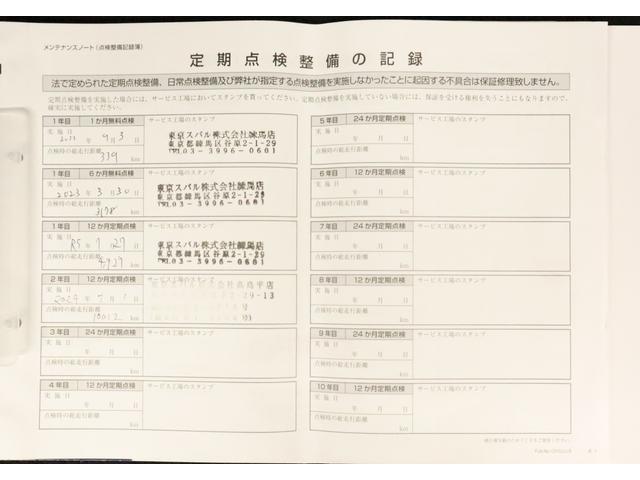 メンテナンスノート(点検整備記録簿)
定期点検整備の記録
法で定められた定期点検整備、日常点検整備及び弊社が指定する点検整備を実施しなかったことに起因する不具合は保証修理致しません。
定期点検整備を実施した場合には、サービス工場においてスタンプを貰ってください。定期点検整備を実施していない場合には、保証を受ける権利を失うことにもなりますので、
確実に実施してください。
1年目 1か月無料点検 サービス工場のスタンプ
実施日
9月3日
点検時の総走行距離
339 km
東京スバル株式会社練馬店
東京都練馬区谷原2-1-29
TEL03-3996-0601
1年目 6か月無料点検 サービス工場のスタンプ
実施日
2023年3月30日
点検時の総走行距離
km
東京スバル株式会社練馬店
東京都練馬区谷原2-1-29
TEL03-3996-0601
1年目 12か月定期点検 サービス工場のスタンプ
実施日
R5年7月27日
点検時の総走行距離
4929 km
東京スバル株式会社練馬店
東京都練馬区谷原2-1-29
TEL03-3996-0601
2年目 12か月定期点検 サービス工場のスタンプ
実施日
2024年7月1日
点検時の総走行距離
10012 km
3年目 24か月定期点検 サービス工場のスタンプ
実施日
年 月 日
点検時の総走行距離
km
4年目 12か月定期点検 サービス工場のスタンプ
実施日
年 月 日
点検時の総走行距離
km
5年目 24か月定期点検 サービス工場のスタンプ
実施日
年 月 日
点検時の総走行距離
km
6年目 12か月定期点検 サービス工場のスタンプ
実施日
年 月 日
点検時の総走行距離
km
7年目 24か月定期点検 サービス工場のスタンプ
実施日
年 月 日
点検時の総走行距離
km
8年目 12か月定期点検 サービス工場のスタンプ
実施日
年 月 日
点検時の総走行距離
km
9年目 24か月定期点検 サービス工場のスタンプ
実施日
年 月 日
点検時の総走行距離
km
10年目 12か月定期点検 サービス工場のスタンプ
実施日
年 月 日
点検時の総走行距離
km